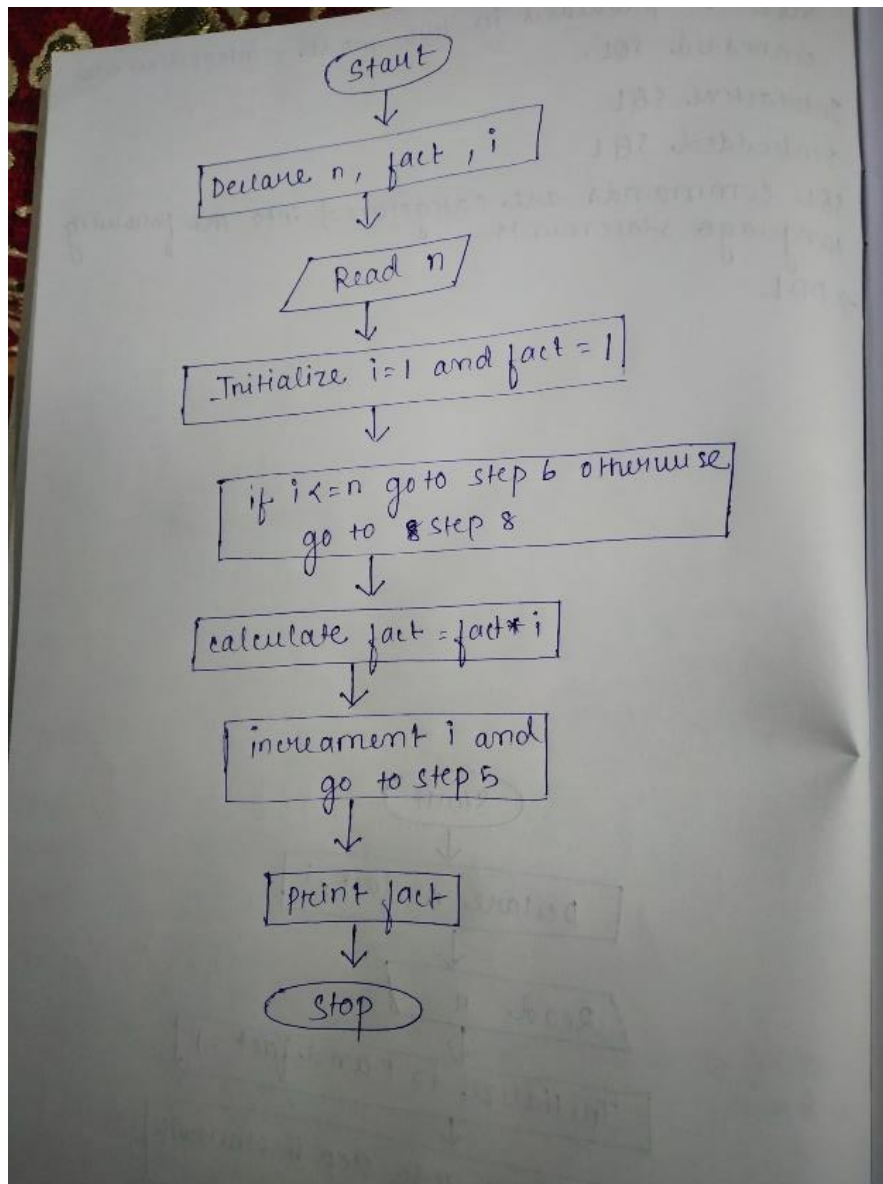 Start
Declare n, fact, i
Read n
Initialize i=1 and fact = 1
if i<=n go to step 6 otherwise
go to step 8
calculate fact = fact * i
increament i and
go to step 5
print fact
Stop